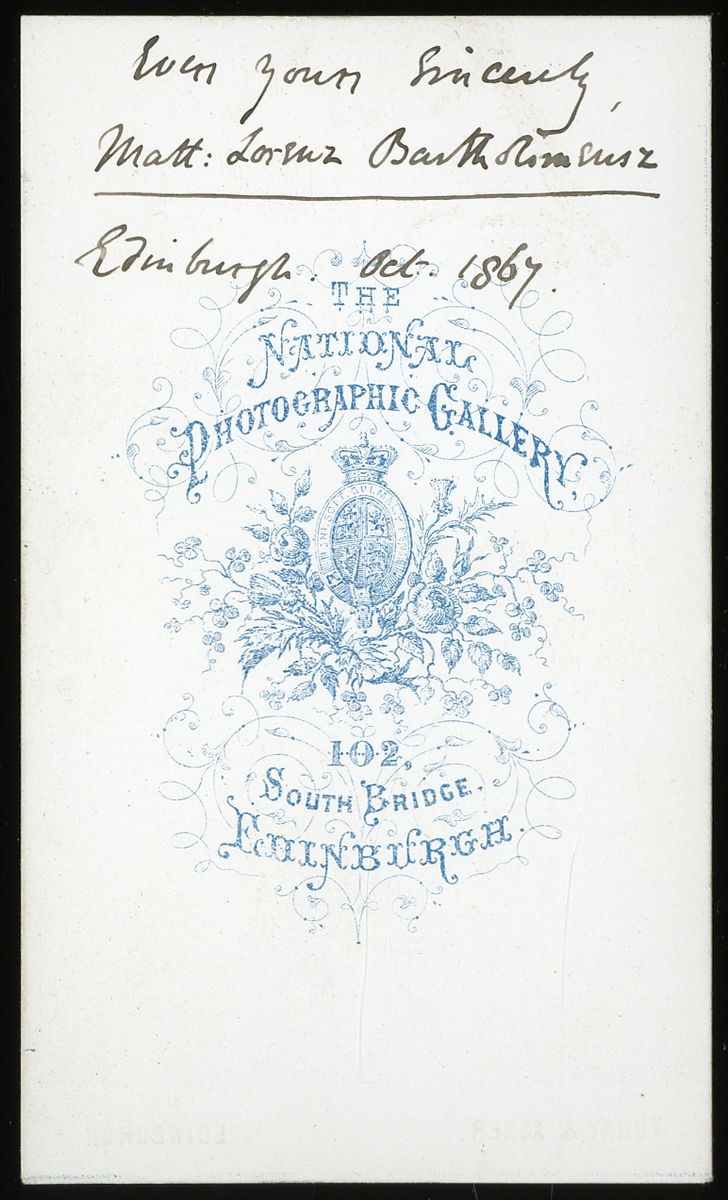 Ever yours Sincerely,
Matt: Lorenz Bartholomeusz
Edinburgh. Oct. 1867.
THE
NATIONAL
PHOTOGRAPHIC GALLERY,
HONI SOIT QUI MAL Y PENSE
102,
SOUTH BRIDGE.
EDINBURGH.
EDINBURGH TUNNY &